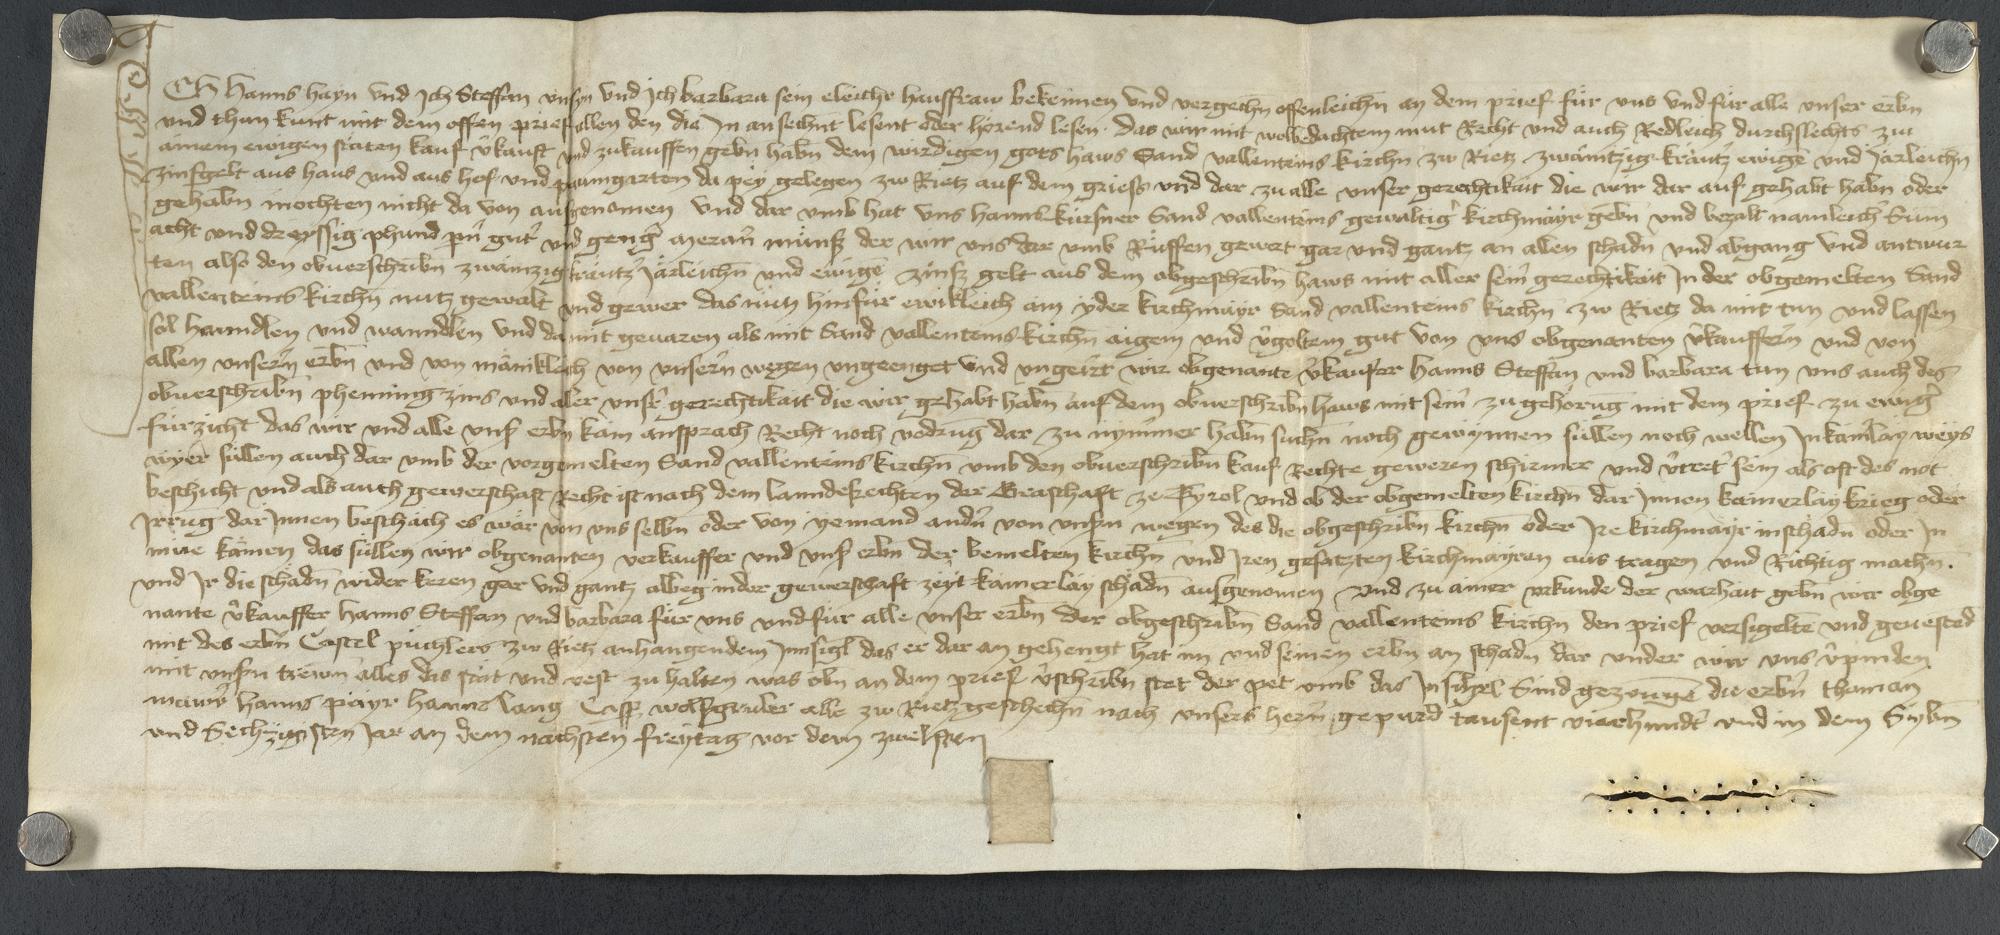 Ich Hanns hayn vnd Ich Steffan vnsyn vnd Ich barbara sein eleiche hausfraw bekennen vnd vergechn̄ offenleichn̄ an dem prief für vns vnd für alle vnser erbn̄
vnd thun kunt mit dem offen prief allen den die In an sechnt lesent oder hörend lesen das wir mit wolbedachtem mut Recht vnd auch Redleich durchslechts zu
ainem ewigen stäten kauf v̄kauft vnd zukauffen gebn̄ habn̄ dem wirdigen gots haws Sand vallenteins kirchn̄ zw Rietz zwäintzig kräutz̄ ewige vnd Järleichn̄
zinsgelt aus haus vnd aus hof vnd paumgarten da pey gelegen zw Rietz auf dem griess vnd dar zu alle vnser gerechtikait die wir dar auf gehabt habn̄ oder
gehabn̄ mochten nicht da von ausgenomen vnd dar vmb hat vns hannß kürsner Sand vallenteins gewaltiḡ kirchmayr gebn̄ vnd bezalt namleich̄ Sum̄
acht vnd dreyssig phund pn̄ gut̄ vnd genḡ Meran̄ münß der wir vns dar vmb Rüffen gewert gar vnd gantz an allen schadn̄ vnd abgang vnd antwur
ten also den obuerschribn̄ zwäinzig kräutz̄ Järleichn̄ vnd ewige zinß gelt aus dem obgeschribn̄ haws mit aller sein̄ gerechtikait In der obgemelten Sand
vallenteins kirchn̄ nutz gewalt vnd gewer das nun hinfür ewikleich ain yder kirchmayr Sand vallenteins kirchn̄ zw Rietz da mit tun vnd lassen
sol hanndlen vnd wanndlen vnd da mit geuaren als mit Sand vallenteins kirchn̄ aigem vnd v̄goltem gut von vns obgenanten v̄kauffern̄ vnd von
allen vnsern̄ erbn̄ vnd von mäniklich von vnsern̄ wegen vngeenget vnd vngeirt wir obgenante v̄kaufer hanns Steffan vnd barbara tun vns auch des
obuerschribn̄ phenning zins vnd aller vnser̄ gerechtikait die wir gehabt habn̄ auf dem obuerschribn̄ haws mit sein̄ zugehörūg mit dem prief zu ewiḡ
fürzicht das wir vnd alle vnß erbn̄ kain ansprach Recht noch vodrūg dar zu nymmer habn̄ suchn̄ noch gewynnen süllen noch wellen In kain̄lay weys
wyer süllen auch dar vmb der vorgemelten Sand vallenteins kirchn̄ vmb den obuerschribn̄ kauf Rechte geweren schirmer vnd v̄tret̄ sein als oft des not
beschicht vnd als auch gewerschaft Recht ist nach dem lanndesrechten der Graschaft ze Tyrol vnd ob der obgemelten kirchn̄ dar Innen kainerlay krieg oder
Irrūg dar Innen beschäch es wär von vns selbn̄ oder von yemand andn̄ von vnsn̄ wegen des die obgeschribn̄ kirchn̄ oder Ire kirchmayr in schadn̄ oder In
müe kämen das süllen wir obgenanten verkauffer vnd vnß erbn̄ der bemelten kirchn̄ vnd Iren gesatzten kirchmayren aus tragen vnd Richtig machn̄.
vnd Ir die schädn̄ wider keren gar vnd gantz allweg in der gewerschaft zeyt kainerlay schadn̄ ausgenomen Vnd zu ainer vrkunde der warhait gebn̄ wir obge
nante v̄kauffer hanns Steffan vnd barbara für vns vnd für alle vnser erbn̄ der obgeschribn̄ Sand vallenteins kirchn̄ den prief versigelten vnd geuested
mit des erbn̄ Castel püchlers zw Rietz anhangendem Innsigl das er dar an gehengt hat im vnd seinen erbn̄ an schadn̄ dar vnder wir vns v̄pinden
mit vnsn̄ trewn̄ alles das stät vnd vest zu halten was obn̄ an dem prief v̄schribn̄ stet der pet vmb das Insigel Sind gezeugē die erbn̄ thoman
hanns payr hanns lang Casp̄ wolfgruber alle zw Rietz geschechn̄ nach vnsers hern̄ gepurd tausent vierhundt̄ vnd in dem Sybn̄
vnd Sechzigisten Jar an dem nächsten freytag vor dem zwelften